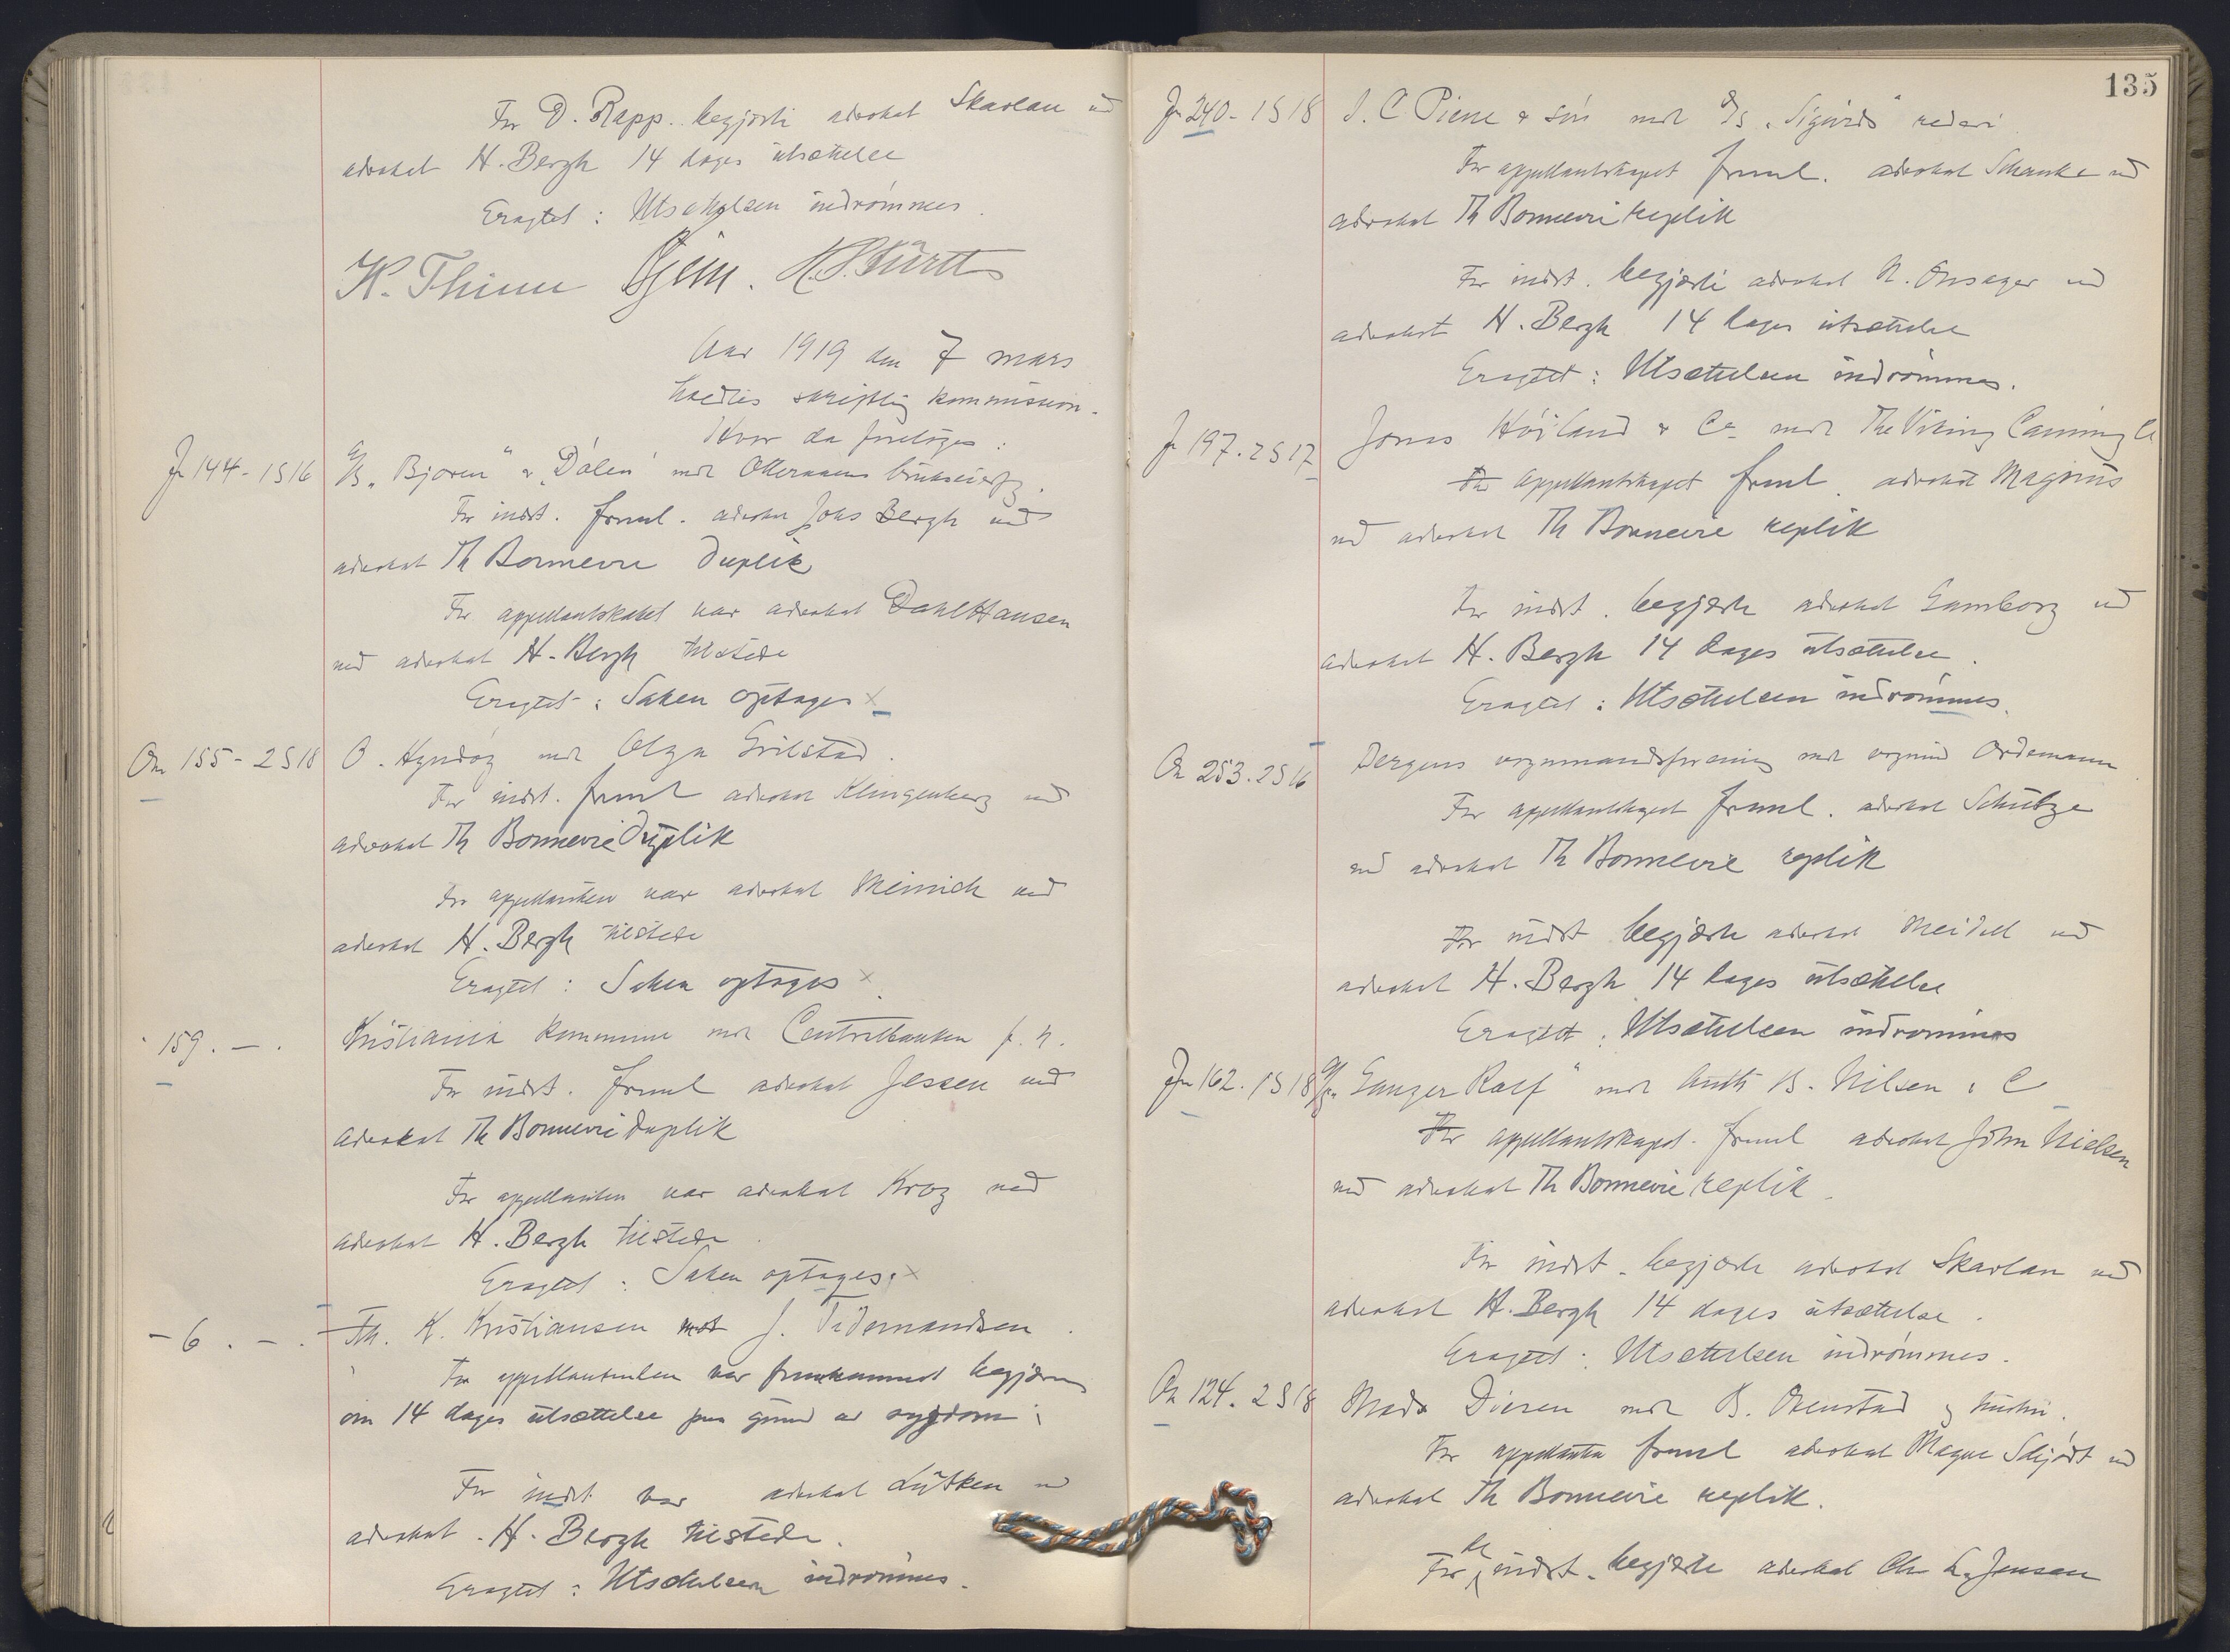 For D. Rapp. begjærte advokat Skavlan ved
advokat H. Bergh 14 dages utsættelse
Eragtet: Utsættelsen indrømmes.
K. Thinn
Aar 1919 den 7 mars
holdtes skriftlig kommission.
Hvor da foretoges:
Jr 144 - 1 S 16 A/S "Bjoren" & "Dølen" mot Otteraaens brukseierfg.
For indst. freml. advokat Johs Bergh ved
advokat Th Bonnevie duplik
For appellantskabet var advokat Dahl Hansen
ved advokat H. Bergh tilstede
Eragtet: Saken optages x
On 155 - 2 S 18 O. Hyndøg mot Olga Grilstad.
For indst. freml advokat Klingenberg ved
advokat Th Bonnevie Duplik
For appellanten var advokat Meinich ved
advokat H. Bergh tilstede
Eragtet: Saken optages x
" 159. — . Kristiania kommune mot Centralbanken f. N.
For indst. freml advokat Jessen ved
advokat Th Bonnevie duplik
For appellanten var advokat Krog ved
advokat H. Bergh tilstede.
Eragtet: Saken optages. x
- 6. - . Th. K. Kristiansen mot J. Tidemandsen.
For appellantinden var fremkommet begjæring
om 14 dages utsættelse paa grund av sygdom;
For indst. var advokat Lütken ved
advokat H. Bergh tilstede.
Eragtet: Utsættelsen indrømmes.
135
Jr 240 - 1 S 18 I. C Piene & søn mot D/S "Sigurds" rederi.
For appellantskapet freml. advokat Schanke ved
advokat Th Bonnevie replik
For indst. begjærte advokat N. Onsager ved
advokat H. Bergh 14 dages utsættelse
Eragtet: Utsættelsen indrømmes.
Jr 197. 2 S 17 Jonas Høiland & Co mot The Viking Canning Co
For appellantskapet freml. advokat Magnus
ved advokat Th Bonnevie replik
For indst. begjærte advokat Gamborg ved
advokat H. Bergh 14 dages utsættelse.
Eragtet: Utsættelsen indrømmes.
On 253. 2 S 16 Bergens vognmandsforening mot vognmd Ordemann
For appellantskapet freml. advokat Schütze
ved advokat Th Bonnevie replik
For indst begjærte advokat Meidell ved
advokat H. Bergh 14 dages utsættelse
Eragtet: Utsættelsen indrømmes
Jr 162. 1 S 18 A/S "Ganger Rolf" mot Anth B. Nilsen & C
For appellantskapet. freml advokat John Nielsen
ved advokat Th Bonnevie replik.
For indst. begjærte advokat Skavlan ved
advokat H. Bergh 14 dages utsættelse.
Eragtet: Utsættelsen indrømmes.
On 124. 2 S 18 Mads Diesen mot B. Ovenstad og hustru.
For appellanten freml advokat Magne Schjødt ved
advokat Th Bonnevie replik.
For de indst. begjærte advokat Chr L. Jensen